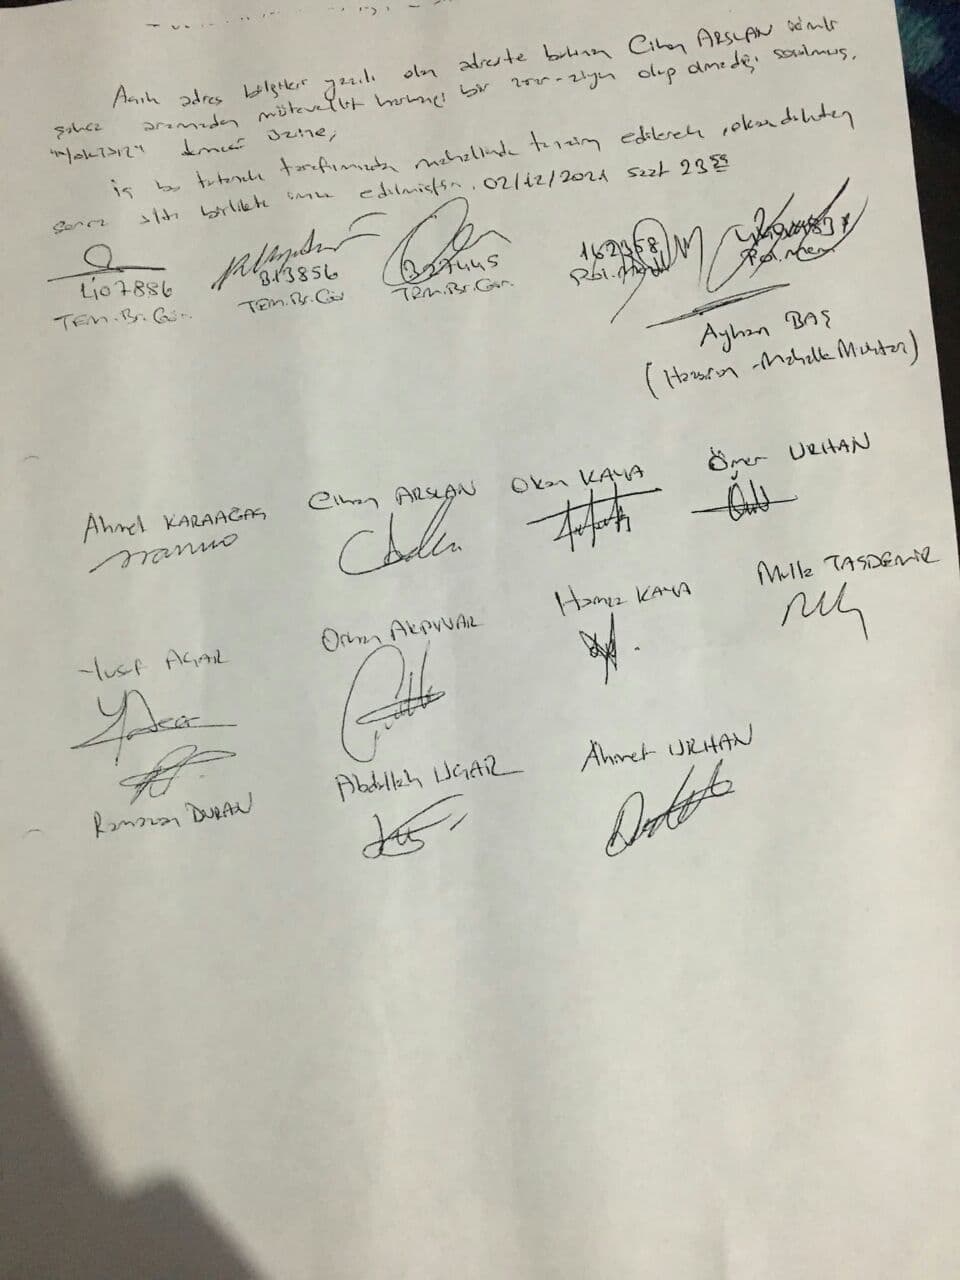 Açık adres bilgileri yazılı olan adreste bulunan Cihan ARSLAN isimli
şahıs aramadan mütevellit herhangi bir zarar-ziyan olup olmadığı sorulmuş,
üzine;
iş bu tutanak tarafımızdan mahallinde tanzim edilerek, okunduktan
sonra altı birlikte imza edilmiştir. 02/12/2021 saat 23
407886 313856 327445 162358
TEM.Br.Gör. TEM.Br.Gör. TEM.Br.Gör. Pol.Mem. Pol.Mem.
Ayhan BAŞ
(Mahalle Muhtarı)
Ahmet KARAAGAS Cihan ARSLAN Okan KAYA Ömer URHAN
Yusuf AÇAR Orhan AKPINAR Hamza KAYA Molla TAŞDEMİR
Ramazan DURAN Abdullah UÇAR Ahmet URHAN